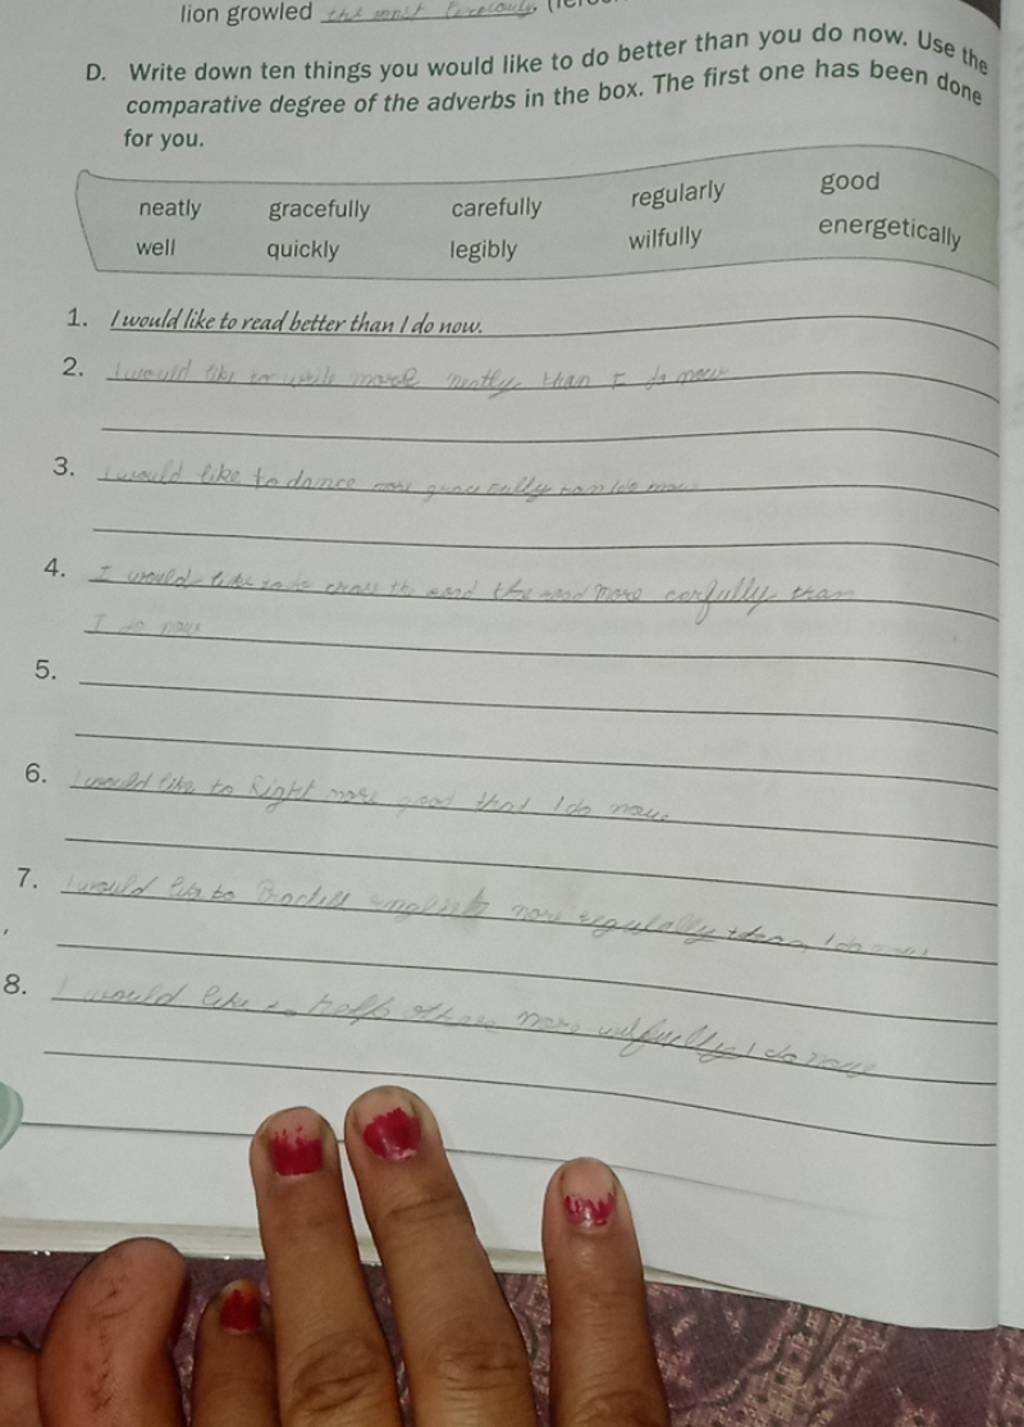 lion growled the most
D. Write down ten things you would like to do better than you do now. Use the
comparative degree of the adverbs in the box. The first one has been done
for you.
neatly gracefully carefully regularly good
well quickly legibly wilfully energetically
1. I would like to read better than I do now.
2. I would like to write more neatly than I do now
3. I would like to dance more
4. I would like cross the the road more corfully than
I do now
5.
6. I would like to more good that I do now.
7. I would like to english more than I do
8. I would like to help more I do now